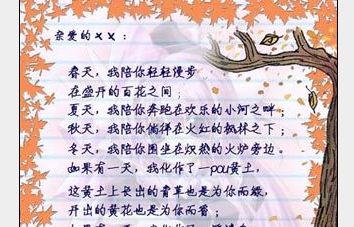 亲爱的××：
春天，我陪你轻轻漫步
在盛开的百花之间；
夏天，我陪你奔跑在欢乐的小河之畔；
秋天，我陪你徜徉在火红的枫林之下；
冬天，我陪你围坐在炽热的火炉旁边。
如果有一天，我化作了一pou黄土，
这黄土上长出的青草也是为你而绿，
开出的黄花也是为你而香；